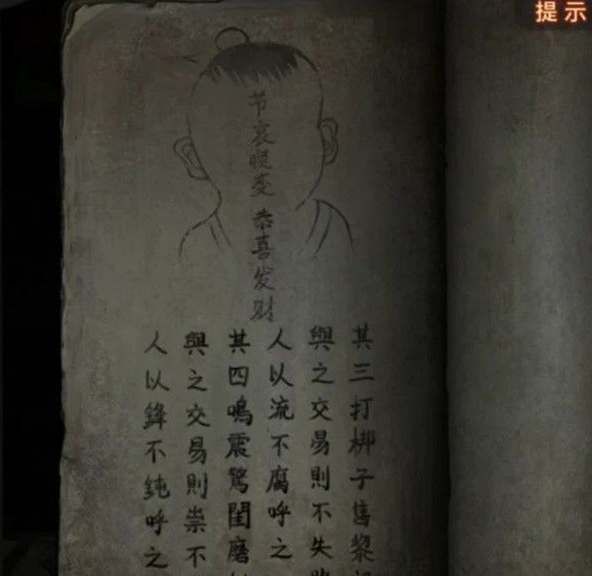 提示
节哀顺变 恭喜发财
其三打梆子售黎
與之交易則不失
人以流不腐呼之
其四鳴震驚閨磨
與之交易則祟不
人以鋒不鈍呼之